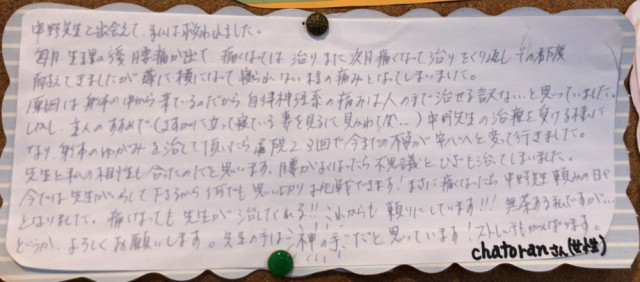 中野先生と出会えて、私は救われました。
毎月、生理の後腰痛が出て、痛くなっては治り、また次月痛くなって治りをくり返し、その都度
耐えてきましたが 横になって寝られない程の痛みとなってしまいました。
原因は身体の中から来ているのだから自律神経系の痛みは人の手で治せる訳ない…と思っていました。
しかし、主人のすすめで(立って寝ている妻を見るに見かねてね…)中野先生の治療を受ける様に
なり、身体のゆがみを治して頂いたら通院2、3回で今までの不安が安心へと変って行きました。
先生と私の相性も合ったのだと思います。腰がよくなったら不思議とひざも治ってしまいました。
今では先生がいらして下さるから何でも思い切りお仕事できます!まさに痛くなったら中野先生頼みの日々
となりました。痛くなっても先生が治してくれる!!これからも頼りにしています!!!無茶ある私ですが…
どうか、よろしくお願いします。先生の手は神の手だと思っています!ストレッチもがんばります。
chatoranさん(女性)